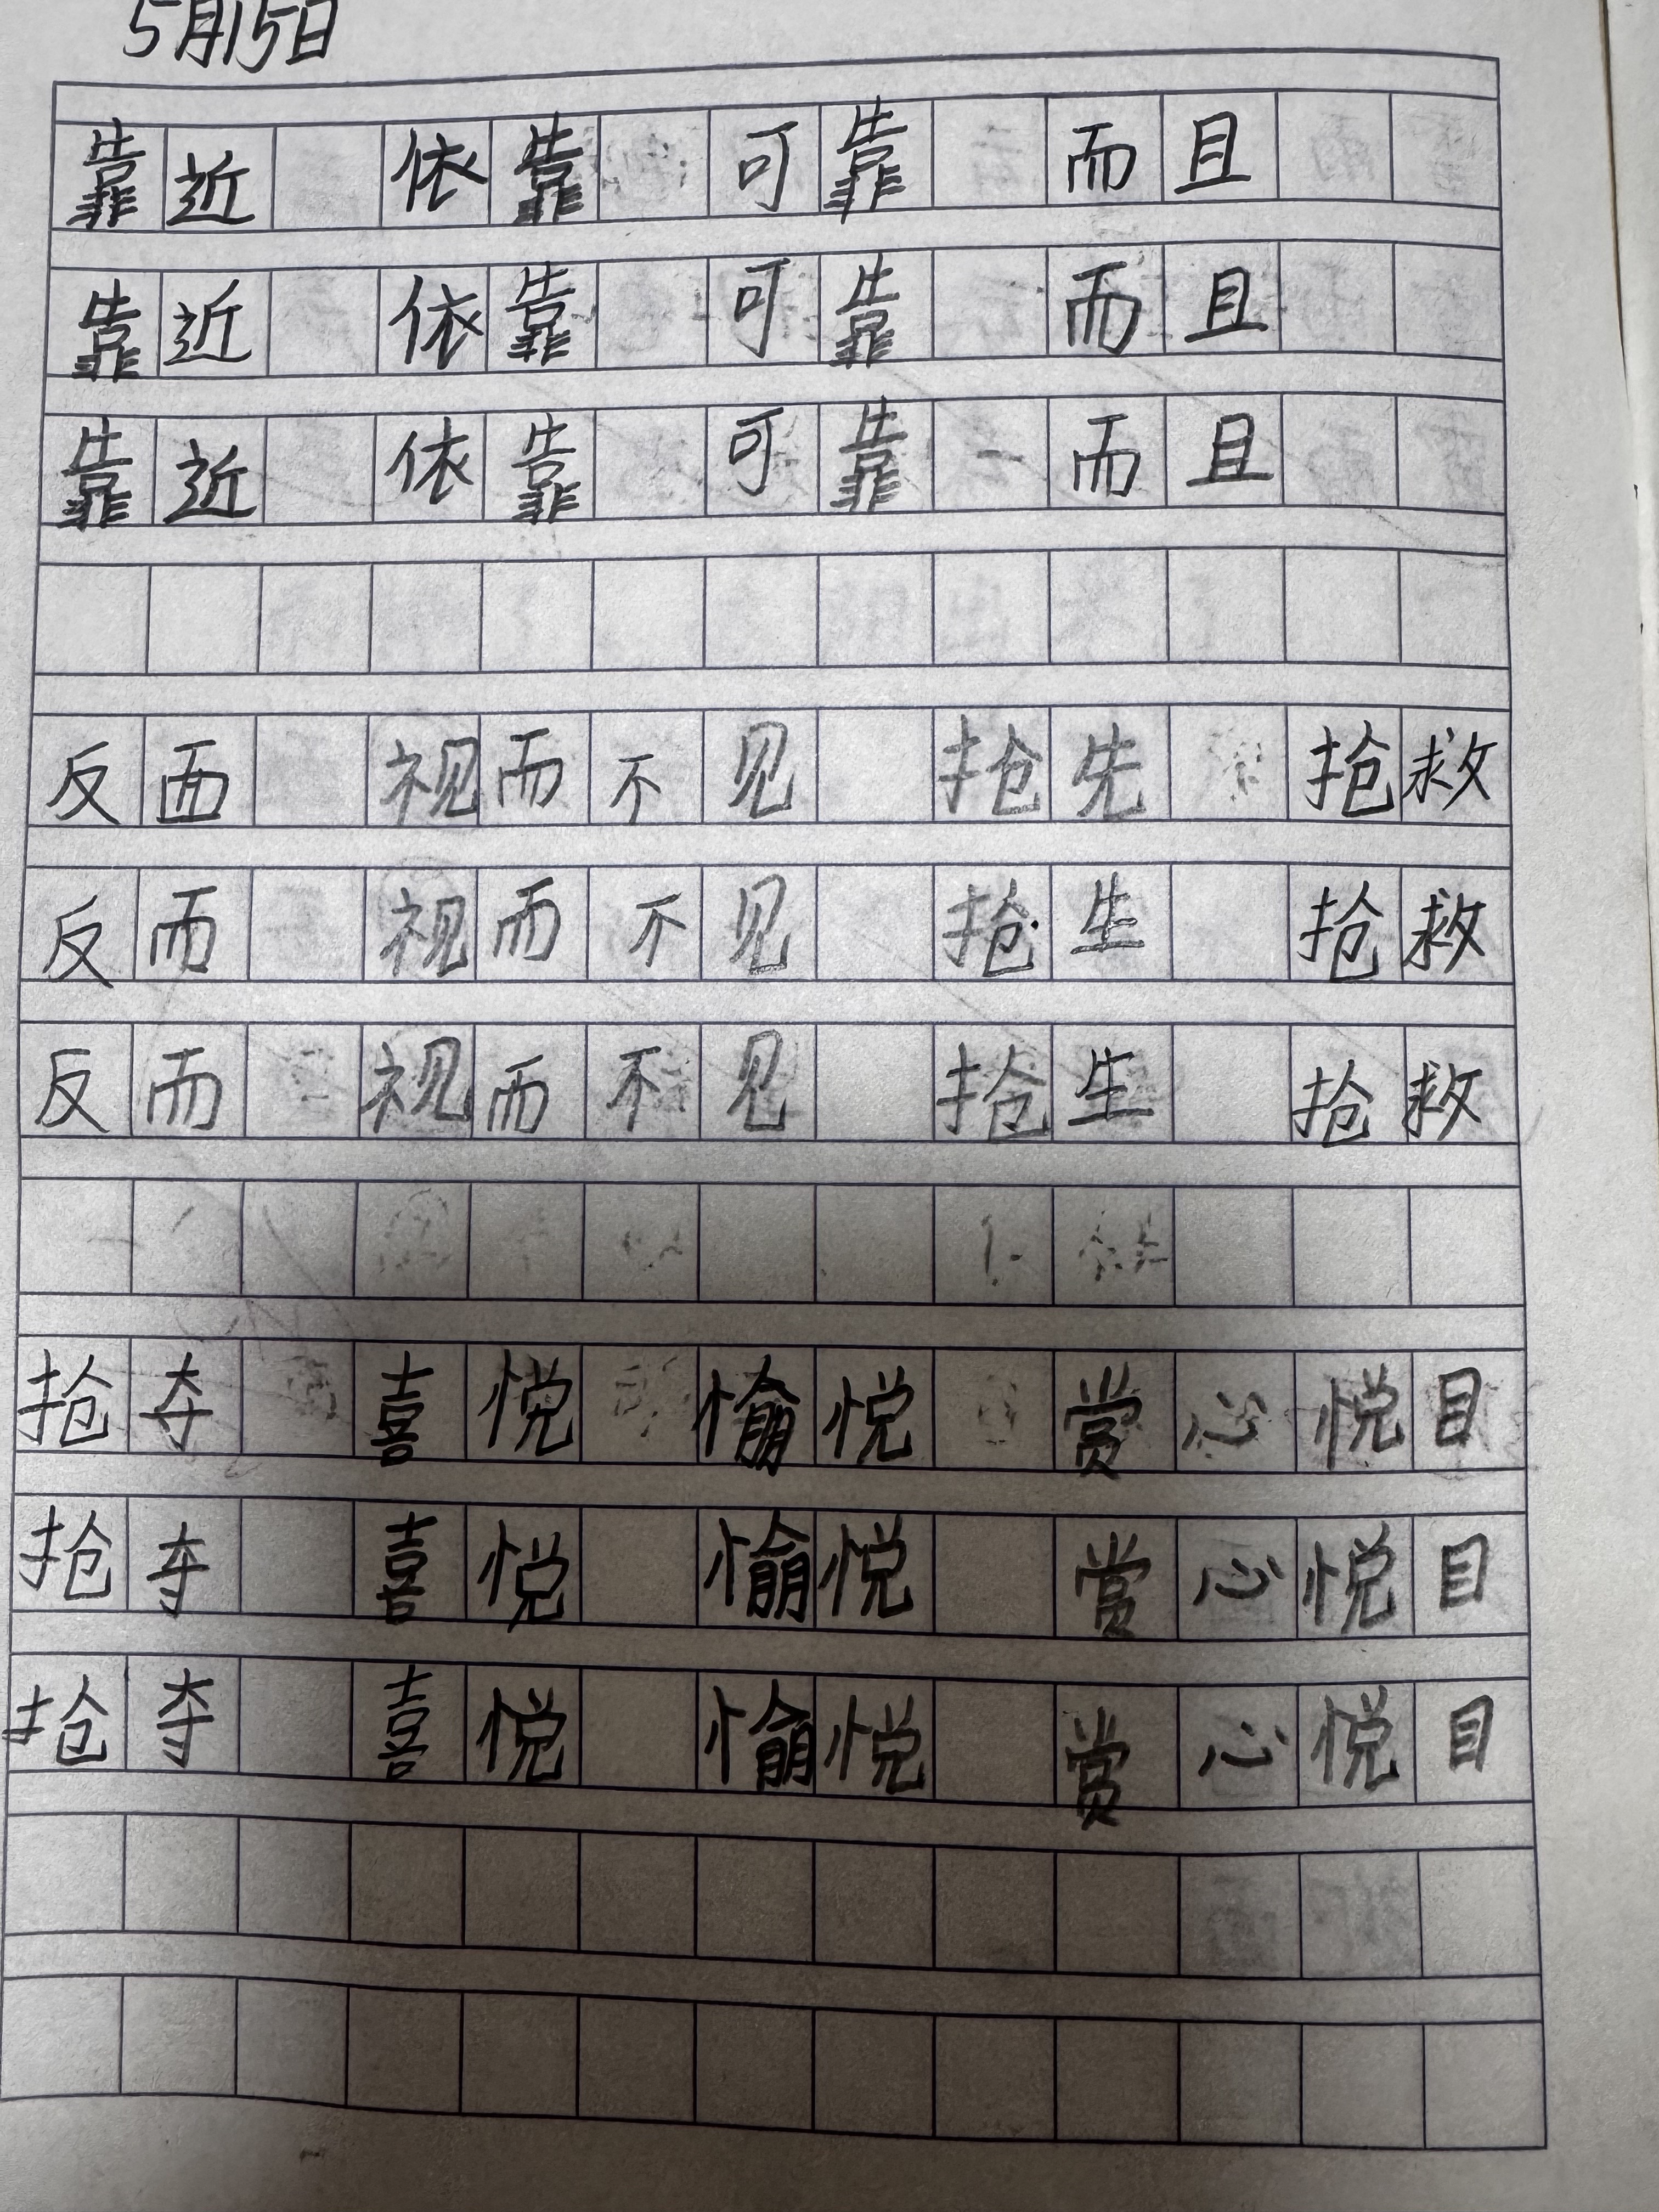 5月15日
靠近 依靠 可靠 而且
靠近 依靠 可靠 而且
靠近 依靠 可靠 而且
反面 视而不见 抢先 抢救
反而 视而不见 抢生 抢救
反而 视而不见 抢生 抢救
抢夺 喜悦 愉悦 赏心悦目
抢夺 喜悦 愉悦 赏心悦目
抢夺 喜悦 愉悦 赏心悦目